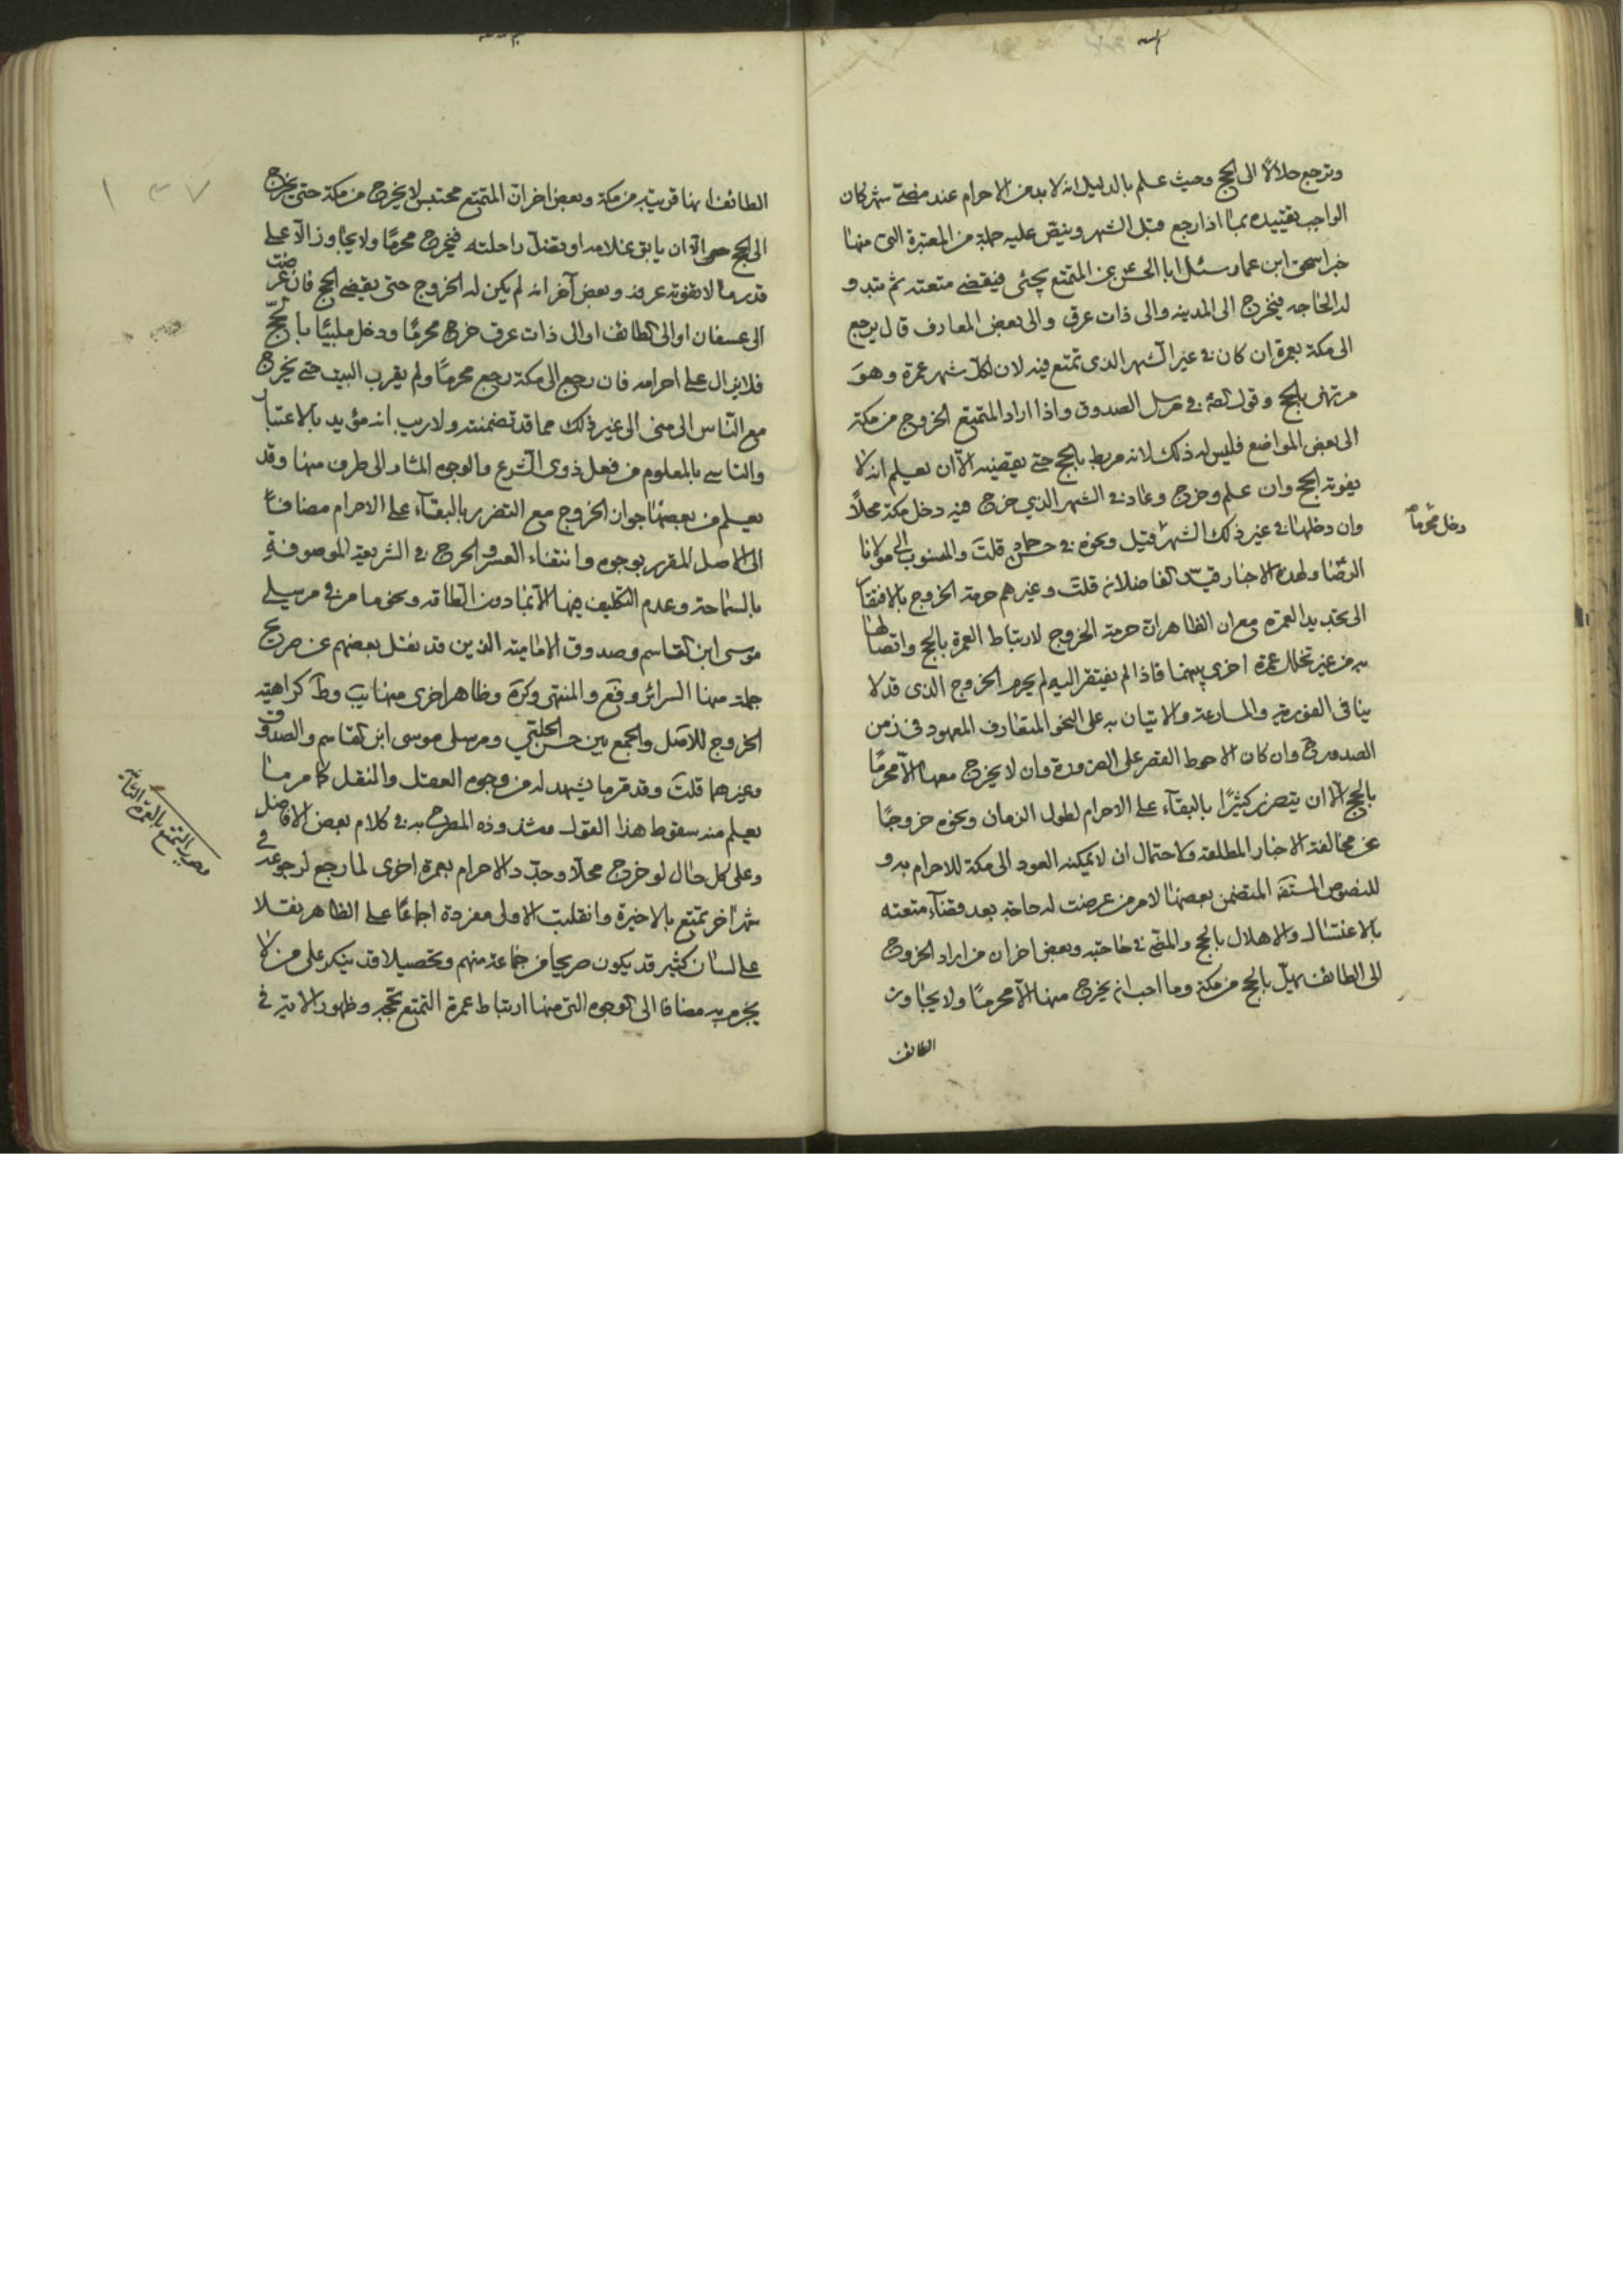 وترجع حلالا الى الحج وحيث علم بالدليل انه لا بد من الاحرام عند مضى شهر كان
الواجب تقييده بما اذا رجع قبل الشهر وينص عليه جملة من المعتبرة التى منها
خبر اسحق ابن عمار سئل ابا الحسن عن المتمتع يجئى فيقضى متعته ثم تبدو
له الحاجه فيخرج الى المدينه والى ذات عرق والى بعض المعارف قال يرجع
الى مكة بعمرة ان كان فى غير الشهر الذى تمتع فيه لان لكل شهر عمرة وهو
مرتهن بالحج وقول فى مرسل الصدوق واذا اراد المتمتع الخروج من مكة
الى بعض المواضع فليس له ذلك لانه مربط بالحج حتى يقضيه الا ان يعلم انه لا
يفوته الحج وان علم وخرج وعاد فى الشهر الذي خرج فيه دخل مكة محلا
وان دخلها فى غير ذلك الشهر دخل محرما
قيل ونحوه فى حسن حماد قلت والمنسوب الى مولانا
الرضا ولهذه الاخبار الفاضلان قلت وغيرهم حرمة الخروج بالافتقار
الى تجديد العمره مع ان الظاهر ان حرمة الخروج لارتباط العمرة بالحج واتصالها
به من غير تخلل عمرة اخرى بينهما فاذا لم يفتقر اليه لم يحرم الخروج الذى قد لا
ينافى الفورية والمسارعة والاتيان به على النحو المتعارف المعهود فى زمن
الصدور وان كان الاحوط القصر على الضرورة وان لا يخرج معها الا محرما
بالحج الا ان يتضرر كثيرا بالبقآء على الاحرام لطول الزمان ونحوه خروجا
عن مخالفة الاخبار المطلقه ولاحتمال ان لا يمكنه العود الى مكة للاحرام به و
للنصوص المتضمن بعضها لامر من عرضت له حاجة بعد قضآء متعته
بالاغتسال والاهلال بالحج والمضى فى حاجته وبعض اخر ان من اراد الخروج
الى الطائف يهل بالحج من مكة وما احب انه يخرج منها الا محرما ولا يجاوز
الطائف
١٣٧
الطائف انها قريبة من مكة وبعض اخر ان المتمتع محتبس لا يخرج من مكة حتى يخرج
الى الحج الا ان يابق غلامه او تضل راحلته فيخرج محرما ولا يجاوز الا على
قدر ما لا تفوته عرفة وبعض آخر انه لم يكن له الخروج حتى يقضى الحج فان عرضت
الى عسفان او الى الطائف او الى ذات عرق خرج محرما ودخل ملبيا بالحج
فلا يزال على احرامه فان رجع الى مكة رجع محرما ولم يقرب البيت حتى يخرج
مع الناس الى منى الى غير ذلك مما قد تضمنته ولا ريب انه مؤيد بالاعتبار
والتاسى بالمعلوم من فعل ذوى الشرع والوجوه المشار الى طرف منها وقد
يعلم من بعضها جواز الخروج مع التضرر بالبقآء على الاحرام مضافا
الى الاصل المقرر بوجوه وانتفاء العسر والحرج فى الشريعة الموصوفة
بالسماحة وعدم التكليف فيها الا بما دون الطاقه ونحو ما مر فى مرسلى
موسى ابن القاسم وصدوق الاماميه الذين قد نقل بعضهم عن صريح
جملة منها السرائر وقع والمنتهى وكرة وظاهر اخرى منها يب وط كراهية
الخروج للاصل والجمع بين حسن الحلبي ومرسلى موسى ابن القاسم والصدوق
وغيرهما قلت وقد مر ما يشهد له من وجوه العقل والنقل كما مر ما
يعلم منه سقوط هذا القول وشذوذه المصرح به فى كلام بعض الافاضل
وعلى كل حال لو خرج محلا وجدد الاحرام بعمرة اخرى لما رجع لرجوعه فى
شهر اخر تمتع بالاخيرة وانقلبت الاولى مفردة اجماعا على الظاهر نقلا
على لسان كثير قد يكون صريحا من جماعة منهم وتحصيلا قد ينكر على من لا
يجزم به مضافا الى الوجوه التى منها ارتباط عمرة التمتع بحجه وظهور الاية فى
التمتع بالعمرة الثانية